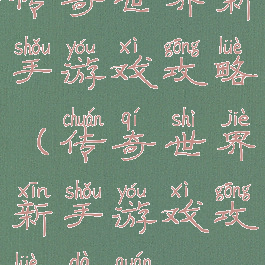 传奇世界新
shǒu yóu xì gōng lüè
手游戏攻略
chuán qí shì jiè
（传奇世界
xīn shǒu yóu xì gōng
新手游戏攻
lüè dà quán